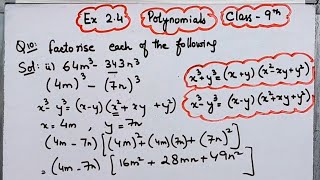 Ex 2.4 Polynomials Class - 9th
Q10: factorise each of the following
Sol: ii) 64m³ - 343n³
(4m)³ - (7n)³
x³+y³ = (x+y) (x²-xy+y²)
x³-y³ = (x-y) (x²+xy+y²)
x³-y³ = (x-y) (x²+xy+y²)
x = 4m , y = 7n
(4m - 7n) [(4m)² + (4m)(7n) + (7n)²]
= (4m - 7n) [16m² + 28mn + 49n²]